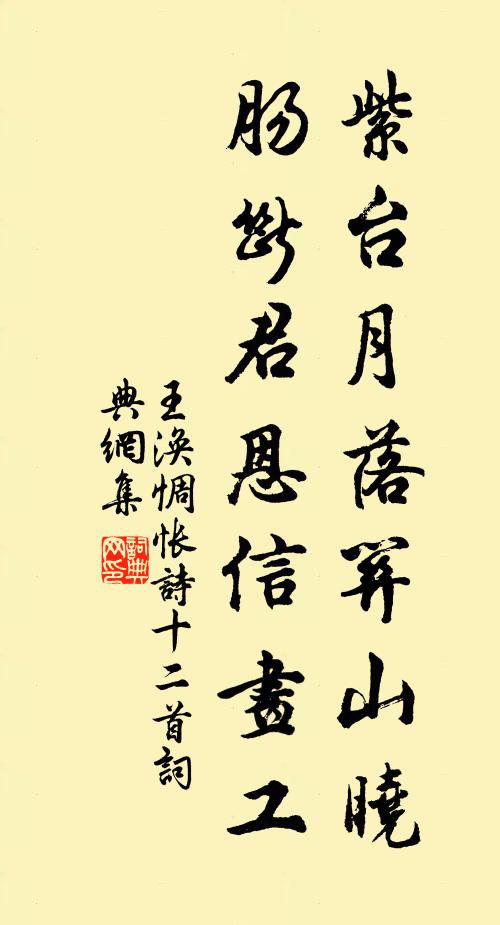 紫台月落關山曉
腸斷君恩信畫工
王渙惆悵詩十二首詞
典網集
詞典网印